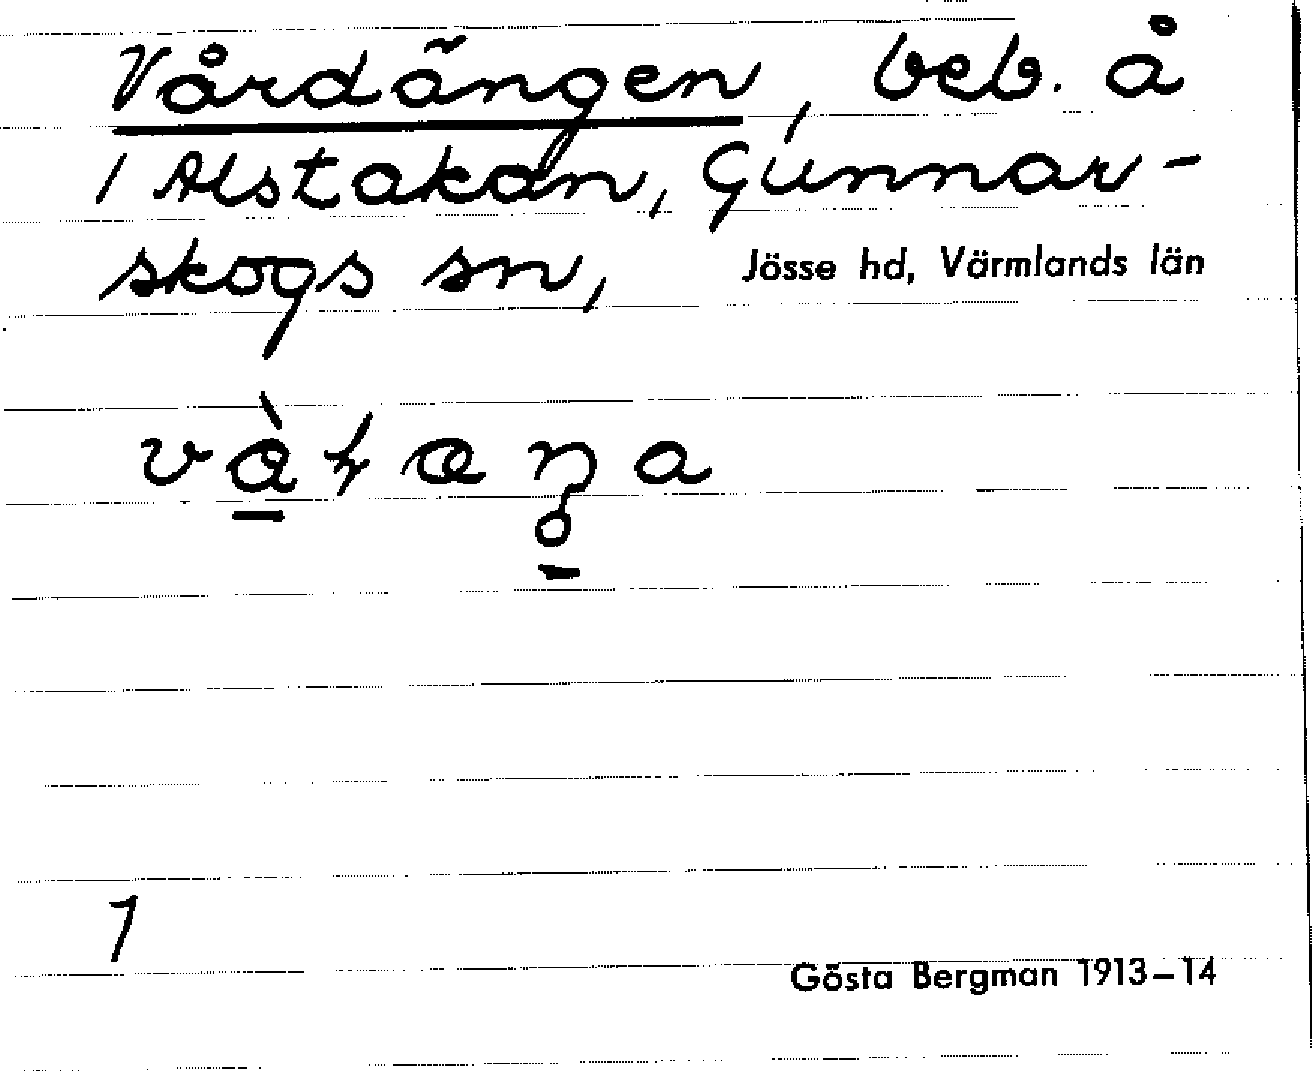 Vårdängen, beb. å
1 Alstakan, Gunnar-
skogs sn, Jösse hd, Värmlands län
1
Gösta Bergman 1913–14